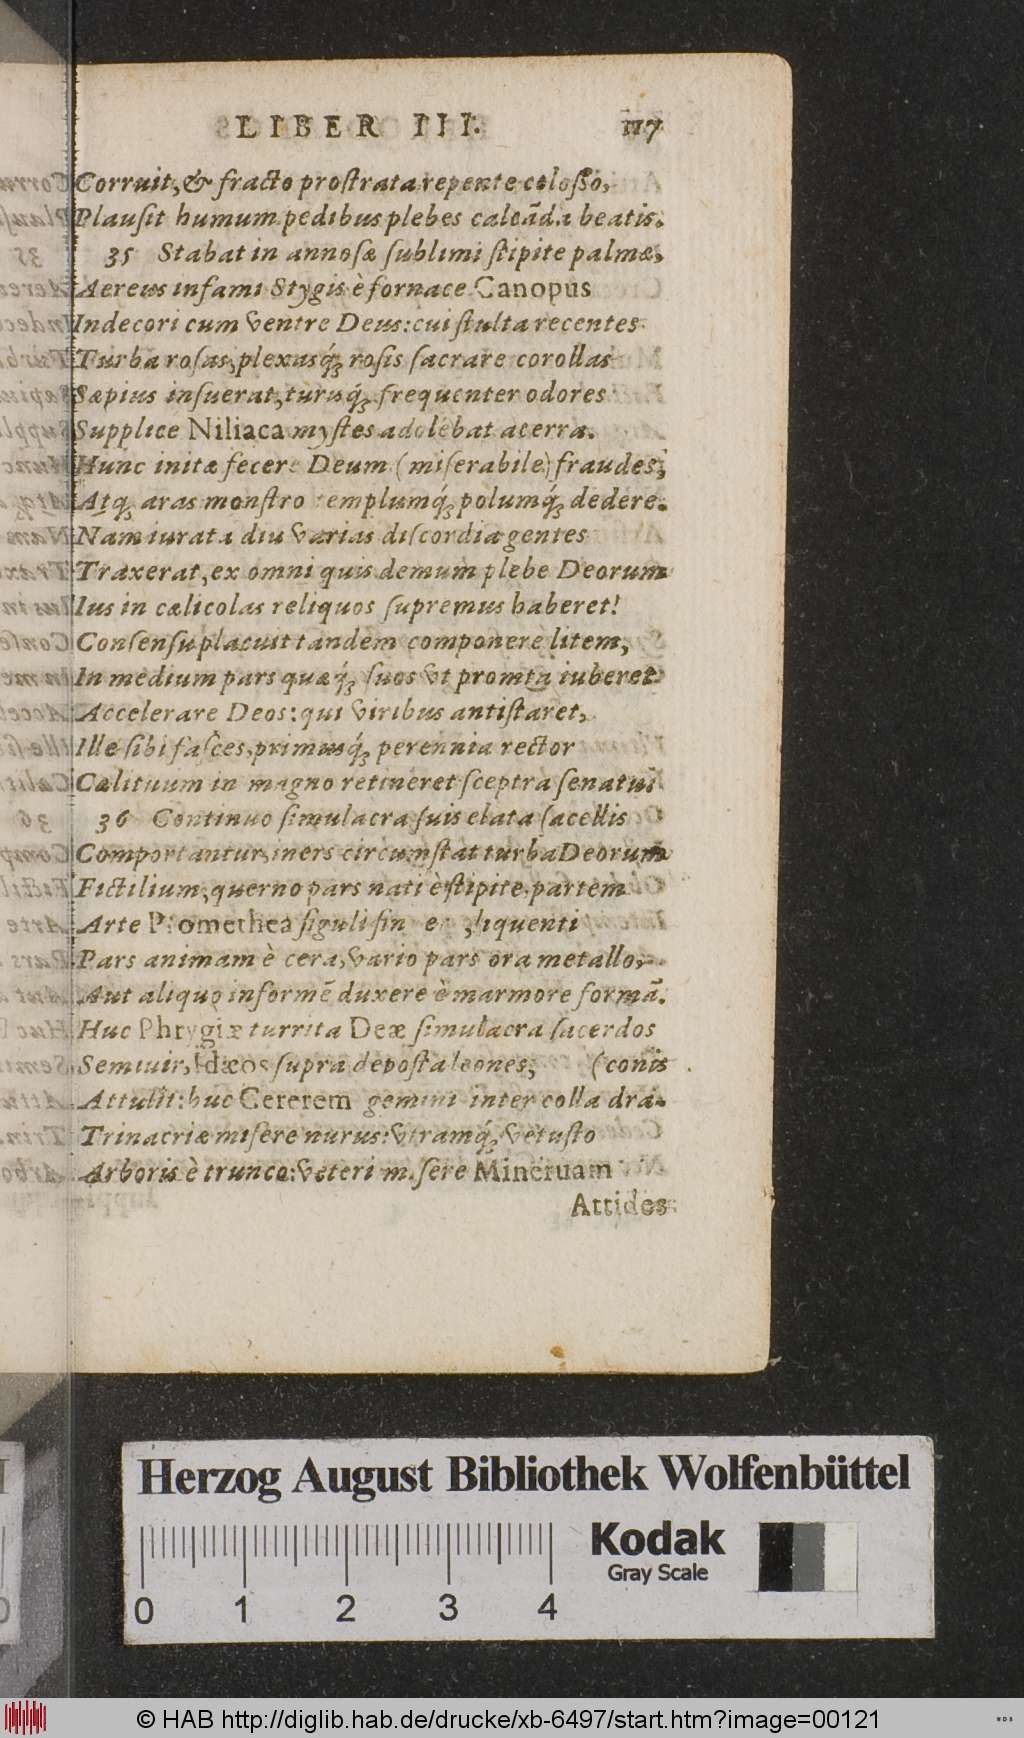 LIBER III. 117
Corruit, & fracto prostrata repente colosso,
Plausit humum pedibus plebes calcãda beatis.
35 Stabat in annosæ sublimi stipite palmæ,
Aereus infami Stygis è fornace Canopus
Indecori cum ventre Deus: cui stulta recentes
Turba rosas, plexasq́; rosis sacrare corollas
Sæpius insuerat, turisq́; frequenter odores
Supplice Niliaca mystes adolebat acerra.
Hunc initæ fecere Deum (miserabile) fraudes,
Atq; aras monstro templumq́; polumq́; dedere.
Nam iurata diu varias discordia gentes
Traxerat, ex omni quis demum plebe Deorum
Ius in cælicolas reliquos supremus haberet!
Consensu placuit tandem componere litem,
In medium pars quæq́; suos vt promta iuberet
Accelerare Deos: qui viribus antistaret,
Ille sibi fasces, primusq́; perennia rector
Cælituum in magno retineret sceptra senatu.
36 Continuo simulacra suis elata sacellis
Comportantur, iners circumstat turba Deorum
Fictilium, querno pars nati è stipite, partem
Arte Promethea figuli liquenti
Pars animam è cera, vario pars ora metallo,
Aut aliquo informẽ duxere è marmore formã.
Huc Phrygiæ turrita Deæ simulacra sacerdos
Semiuir, Idæos supra deposta leones, (conis
Attulit: huc Cererem gemini inter colla dra-
Trinacriæ misere nurus: vtramq́; vetusto
Arboris è trunco: veteri misere Mineruam
Attides
Herzog August Bibliothek Wolfenbüttel
Kodak
Gray Scale
0 1 2 3 4
© HAB http://diglib.hab.de/drucke/xb-6497/start.htm?image=00121